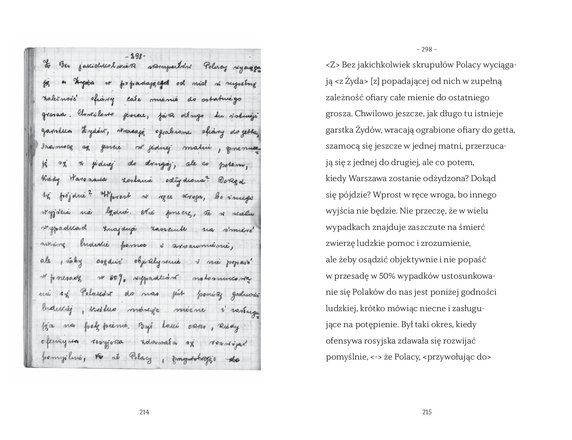 -298-
Bez jakichkolwiek skrupułów Polacy wyciąga-
ją z Żyda popadającej od nich w zupełną
zależność ofiary całe mienie do ostatniego
grosza. Chwilowo jeszcze, jak długo tu istnieje
garstka Żydów, wracają ograbione ofiary do getta,
szamocą się jeszcze w jednej matni, przerzuca-
ją się z jednej do drugiej, ale co potem,
kiedy Warszawa zostanie odżydzona? Dokąd
się pójdzie? Wprost w ręce wroga, bo innego
wyjścia nie będzie. Nie przeczę, że w wielu
wypadkach znajduje zaszczute na śmierć
zwierzę ludzkie pomoc i zrozumienie,
ale żeby osądzić objektywnie i nie popaść
w przesadę w 50% wypadków ustosunkowa-
nie się Polaków do nas jest poniżej godności
ludzkiej, krótko mówiąc niecne i zasługu-
jące na potępienie. Był taki okres, kiedy
ofensywa rosyjska zdawała się rozwijać
pomyślnie, że Polacy, przywołując do
214
– 298 –
<Z> Bez jakichkolwiek skrupułów Polacy wyciąga-
ją <z Żyda> [z] popadającej od nich w zupełną
zależność ofiary całe mienie do ostatniego
grosza. Chwilowo jeszcze, jak długo tu istnieje
garstka Żydów, wracają ograbione ofiary do getta,
szamocą się jeszcze w jednej matni, przerzuca-
ją się z jednej do drugiej, ale co potem,
kiedy Warszawa zostanie odżydzona? Dokąd
się pójdzie? Wprost w ręce wroga, bo innego
wyjścia nie będzie. Nie przeczę, że w wielu
wypadkach znajduje zaszczute na śmierć
zwierzę ludzkie pomoc i zrozumienie,
ale żeby osądzić objektywnie i nie popaść
w przesadę w 50% wypadków ustosunkowa-
nie się Polaków do nas jest poniżej godności
ludzkiej, krótko mówiąc niecne i zasługu-
jące na potępienie. Był taki okres, kiedy
ofensywa rosyjska zdawała się rozwijać
pomyślnie, <-> że Polacy, <przywołując do>
215